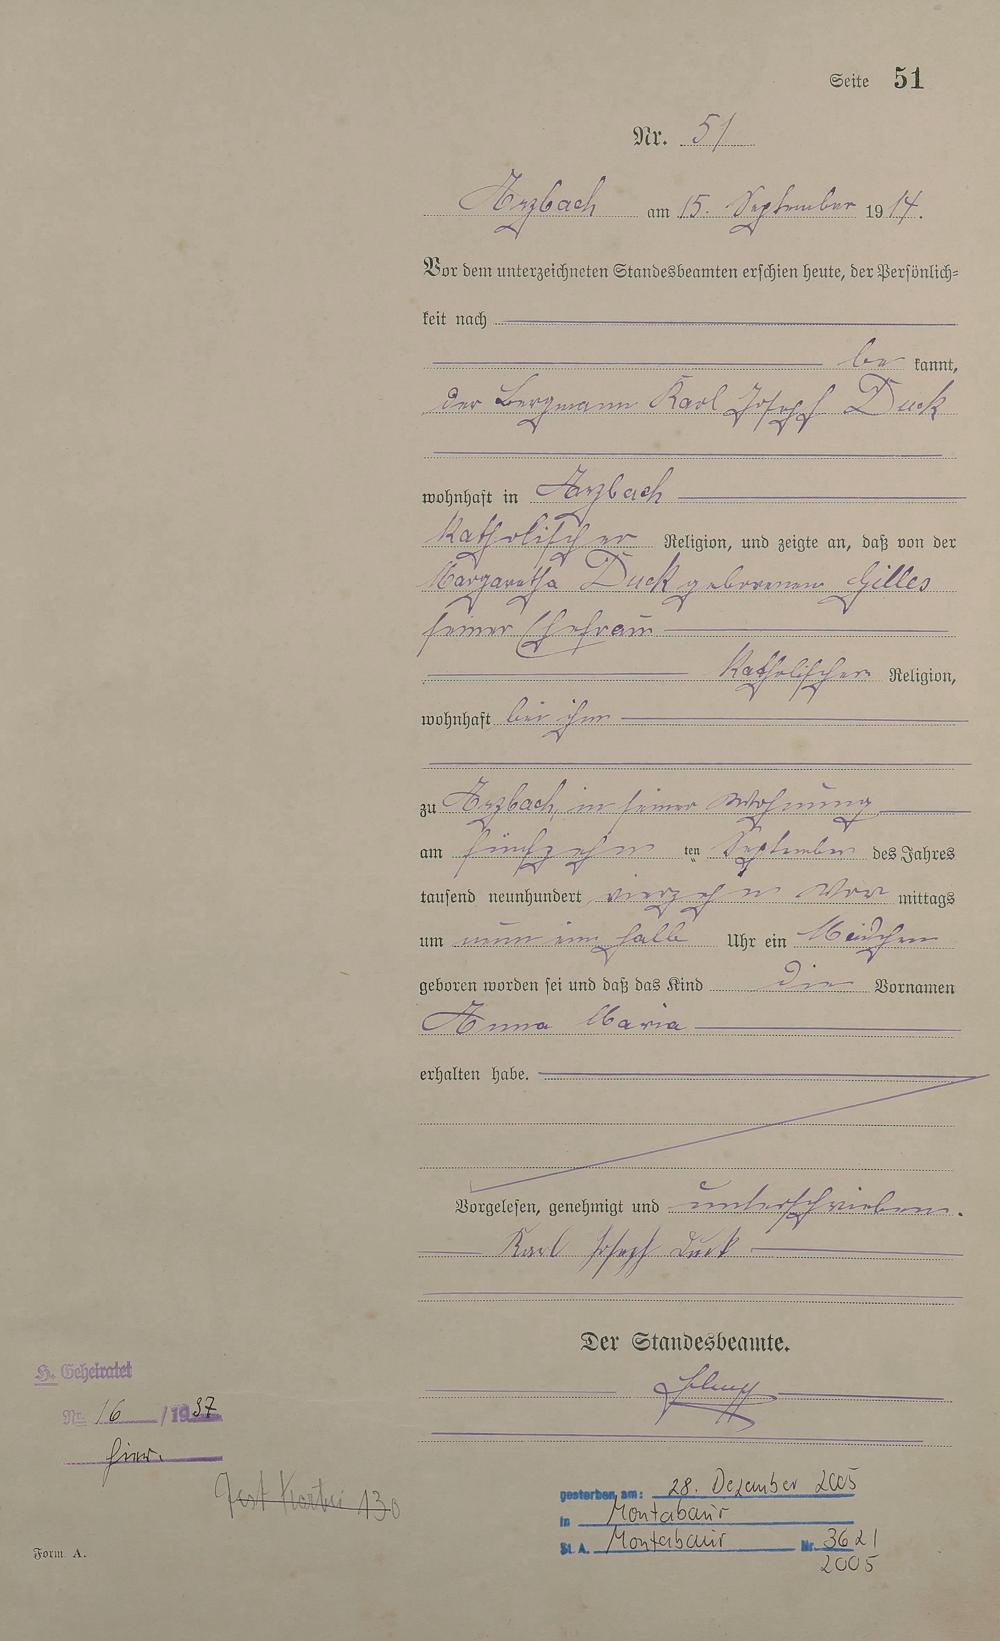 Seite 51
Nr. 51
Arzbach am 15. September 1914.
Vor dem unterzeichneten Standesbeamten erschien heute, der Persönlich=
keit nach
be kannt,
der Bergmann Karl Joseph Duck
wohnhaft in Arzbach
katholischer Religion, und zeigte an, daß von der
Margaretha Duck geborenen Gilles
seiner Ehefrau
katholischer Religion,
wohnhaft bei ihm
zu Arzbach, in seiner Wohnung
am fünfzehn ten September des Jahres
tausend neunhundert vierzehn Vor mittags
um neun ein halb Uhr ein Mädchen
geboren worden sei und daß das Kind die Vornamen
Anna Maria
erhalten habe.
Vorgelesen, genehmigt und unterschrieben.
Karl Joseph Duck
Der Standesbeamte.
H. Geheiratet
Nr. 16 /1937
hier.
Kartei 130
gestorben am: 28. Dezember 2005
in Montabaur
St. A. Montabaur Nr. 3621
2005
Form. A.